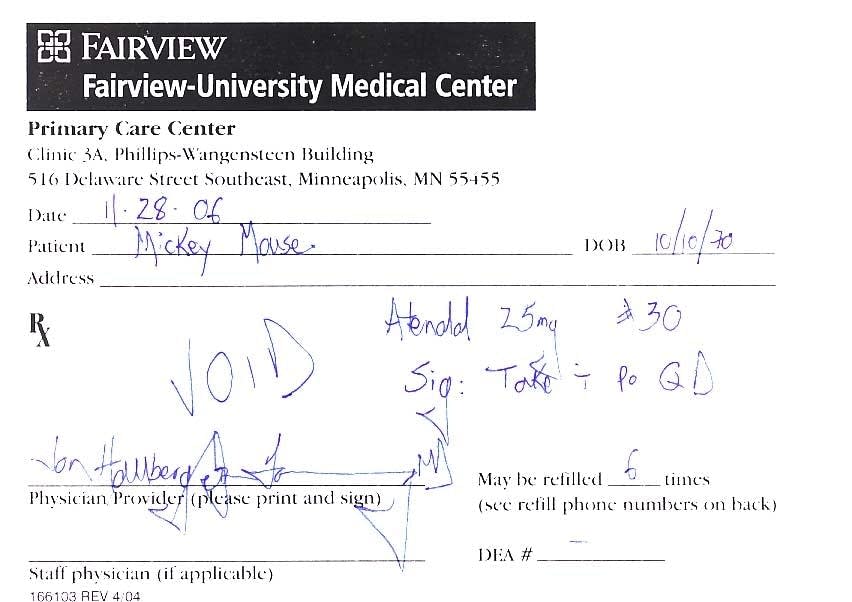 FAIRVIEW
Fairview-University Medical Center
Primary Care Center
Clinic 3A, Phillips-Wangensteen Building
516 Delaware Street Southeast, Minneapolis, MN 55455
Date 11-28-06
Patient Mickey Mouse DOB 10/10/70
Address
Rx Atenolol 25mg #30
VOID Sig: Take ÷ po QD
Jon Hallberg MD
Physician/Provider (please print and sign) May be refilled 6 times
(see refill phone numbers on back)
DEA # –
Staff physician (if applicable)
166103 REV 4/04